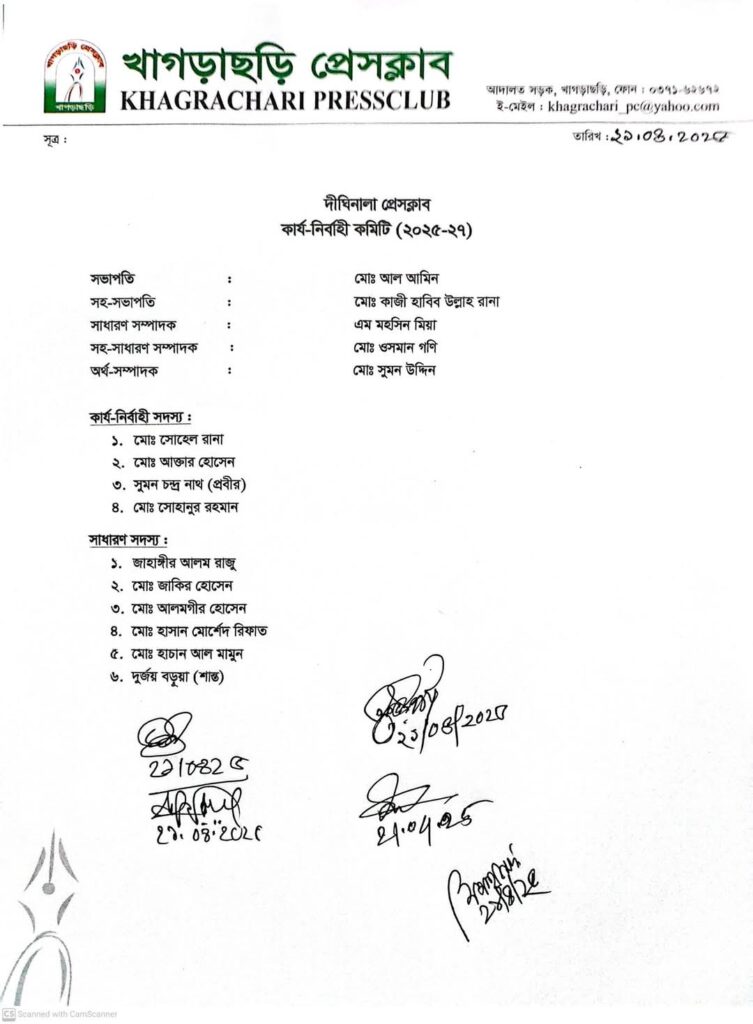 খাগড়াছড়ি প্রেসক্লাব
খাগড়াছড়ি প্রেসক্লাব
খাগড়াছড়ি
KHAGRACHARI PRESSCLUB
আদালত সড়ক, খাগড়াছড়ি, ফোন : ০৩৭১-৬২৬৭২
ই-মেইল : khagrachari_pc@yahoo.com
সূত্র :
তারিখ : ২১.০৪.২০২৫
দীঘিনালা প্রেসক্লাব
কার্য-নির্বাহী কমিটি (২০২৫-২৭)
সভাপতি : মোঃ আল আমিন
সহ-সভাপতি : মোঃ কাজী হাবিব উল্লাহ রানা
সাধারণ সম্পাদক : এম মহসিন মিয়া
সহ-সাধারণ সম্পাদক : মোঃ ওসমান গণি
অর্থ-সম্পাদক : মোঃ সুমন উদ্দিন
কার্য-নির্বাহী সদস্য :
১. মোঃ সোহেল রানা
২. মোঃ আক্তার হোসেন
৩. সুমন চন্দ্র নাথ (প্রবীর)
৪. মোঃ সোহানুর রহমান
সাধারণ সদস্য :
১. জাহাঙ্গীর আলম রাজু
২. মোঃ জাকির হোসেন
৩. মোঃ আলমগীর হোসেন
৪. মোঃ হাসান মোর্শেদ রিফাত
৫. মোঃ হাচান আল মামুন
৬. দুর্জয় বড়ুয়া (শান্ত)
২১/০৪/২০২৫
২১/০৪২৫
২১.০৪.২০২৫
21.04.25
২১/৪/২৫
CS Scanned with CamScanner